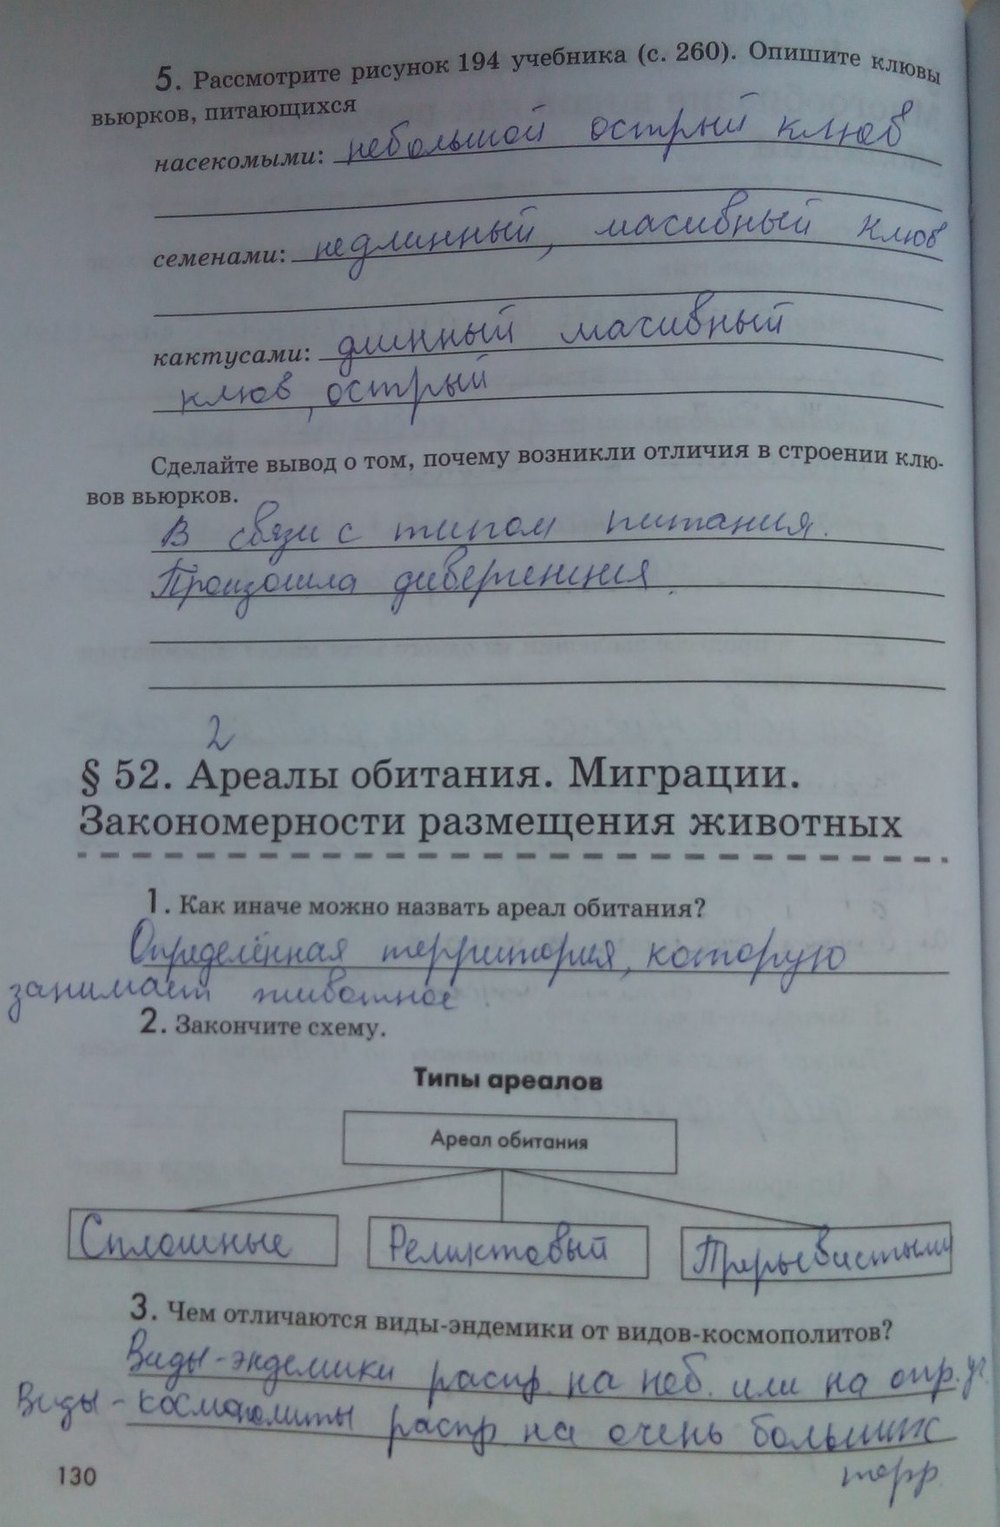 5. Рассмотрите рисунок 194 учебника (с. 260). Опишите клювы
вьюрков, питающихся
насекомыми: небольшой острый клюв
семенами: недлинный, масивный клюв
кактусами: длинный масивный
клюв, острый
Сделайте вывод о том, почему возникли отличия в строении клю-
вов вьюрков.
В связи с типом питания.
Произошла дивергенция.
2
§ 52. Ареалы обитания. Миграции.
Закономерности размещения животных
1. Как иначе можно назвать ареал обитания?
Определённая территория, которую
занимает животное.
2. Закончите схему.
Типы ареалов
Ареал обитания
Сплошные
Реликтовый
3. Чем отличаются виды-эндемики от видов-космополитов?
Виды-эндемики распр. на неб. или на опр.
Виды-космополиты распр на очень больших
терр.
130